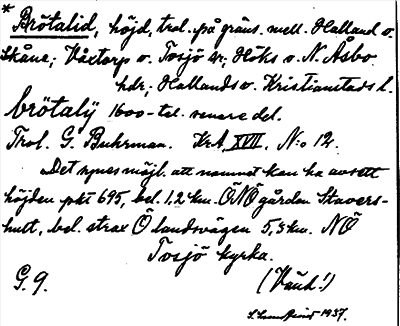 * Brötalid, höjd, trol. på gräns. mell. Halland o.
Skåne; Våxtorp o. Tosjö sr; Höks o. N. Åsbo
hdr; Hallands o. Kristianstads l.
brötalÿ 1600-tal. senare del.
Trol. G. Buhrman. KrA XVII, N:o 12.
Det synes möjl. att namnet kan ha avsett
höjden pkt 695, bel. 1,2 km. ÖNÖ gården Stavers-
hult, bel. strax Ö landsvägen 5,3 km. NÖ
Tosjö kyrka.
G. 9.
(Vänd!)
1937.